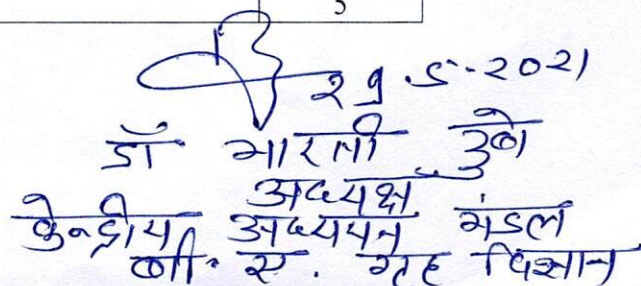 5
29.5-2021
डॉ भारती दुबे
अध्यक्ष
केन्द्रीय अध्ययन मंडल
बी. ए. गृह विज्ञान